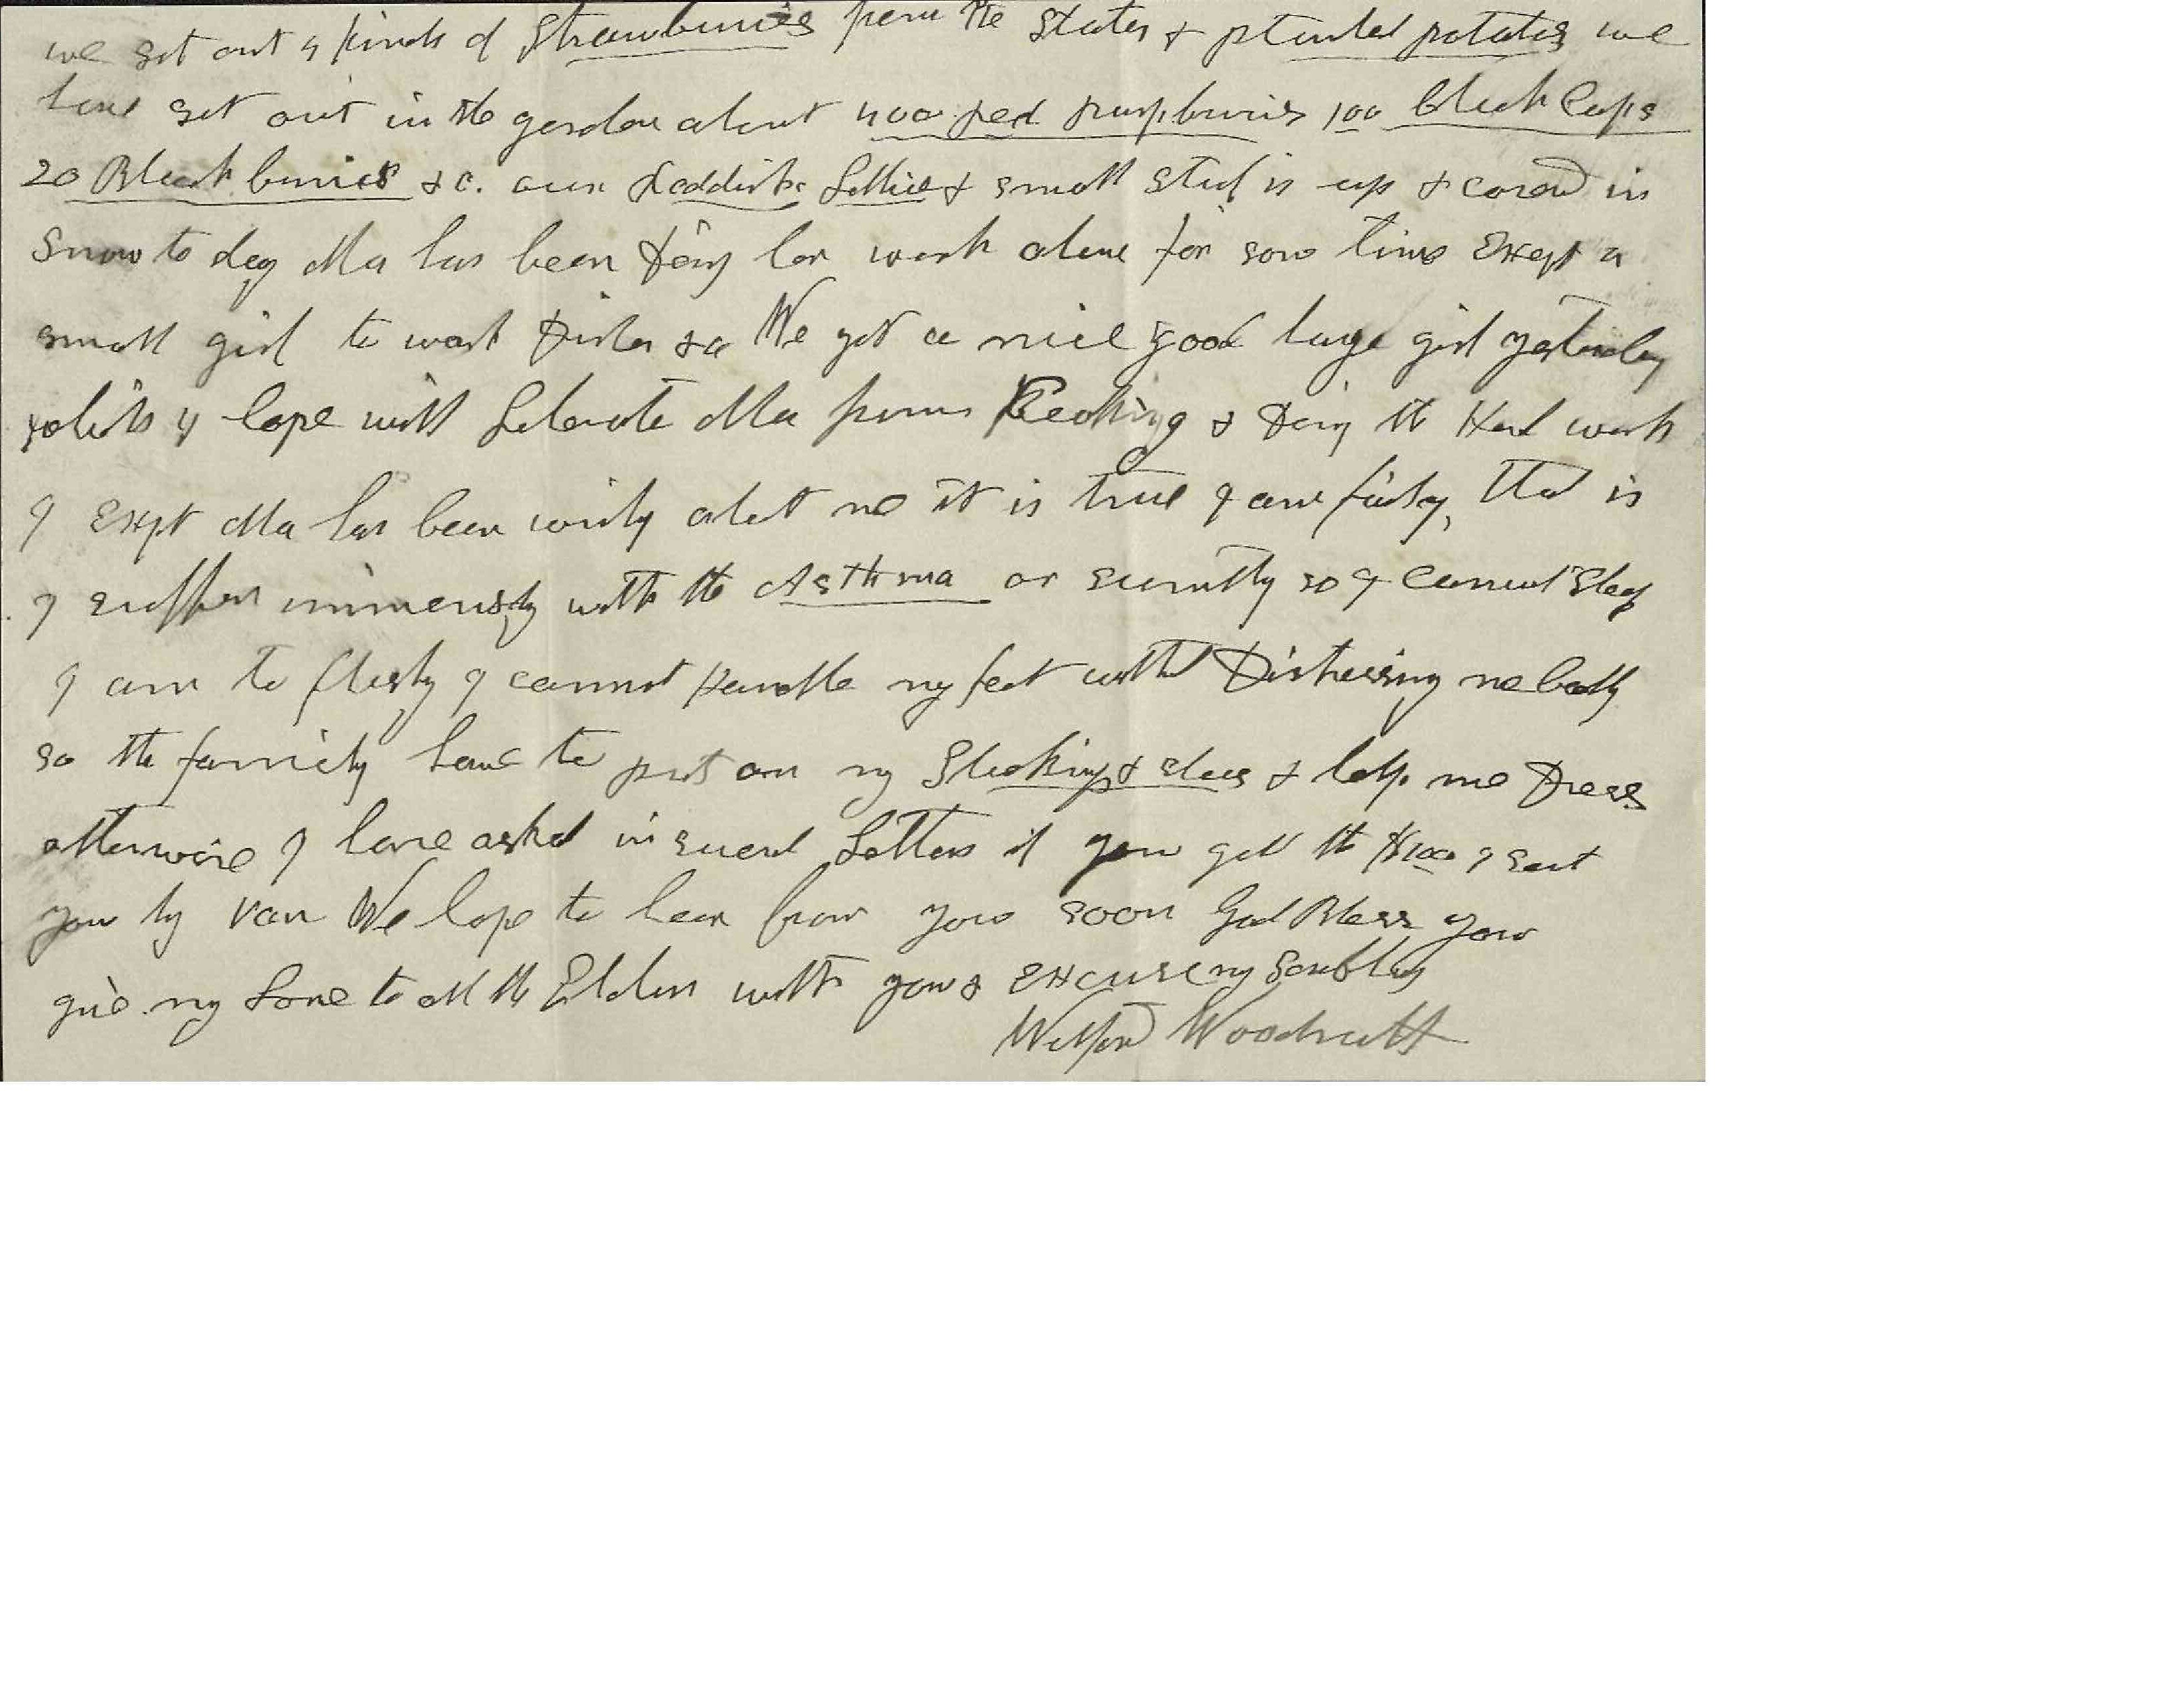 we set out 4 kinds of Strawburies from the States & planted potatoes we
have set out in the garden about 400 red raspburies 100 black Caps
20 Black burries &c. our Raddish Lettice & small stuf is up & coverd in
Snow to day Ma has been doing her work alone for some time Except a
small girl to wash Dishes &c We got a nice good large girl yesterday
which I hope will Liberate Ma from Cooking & doing the Hard work
I Expt Ma has been writing about me it is true I am failing, that is
I suffer immensely with the Asthma or sumthing so I cannot sleep
I am to fleshy I cannot Handle my feet without Distressing me badly
so the family have to put on my Stockings & shoes & help me Dress
otherwise I have asked in several Letters if you got the $100 I sent
you by Van We hope to hear from you soon God Bless you
give my Love to all the Elders with you & Excuse my Scribbling
Wilford Woodruff